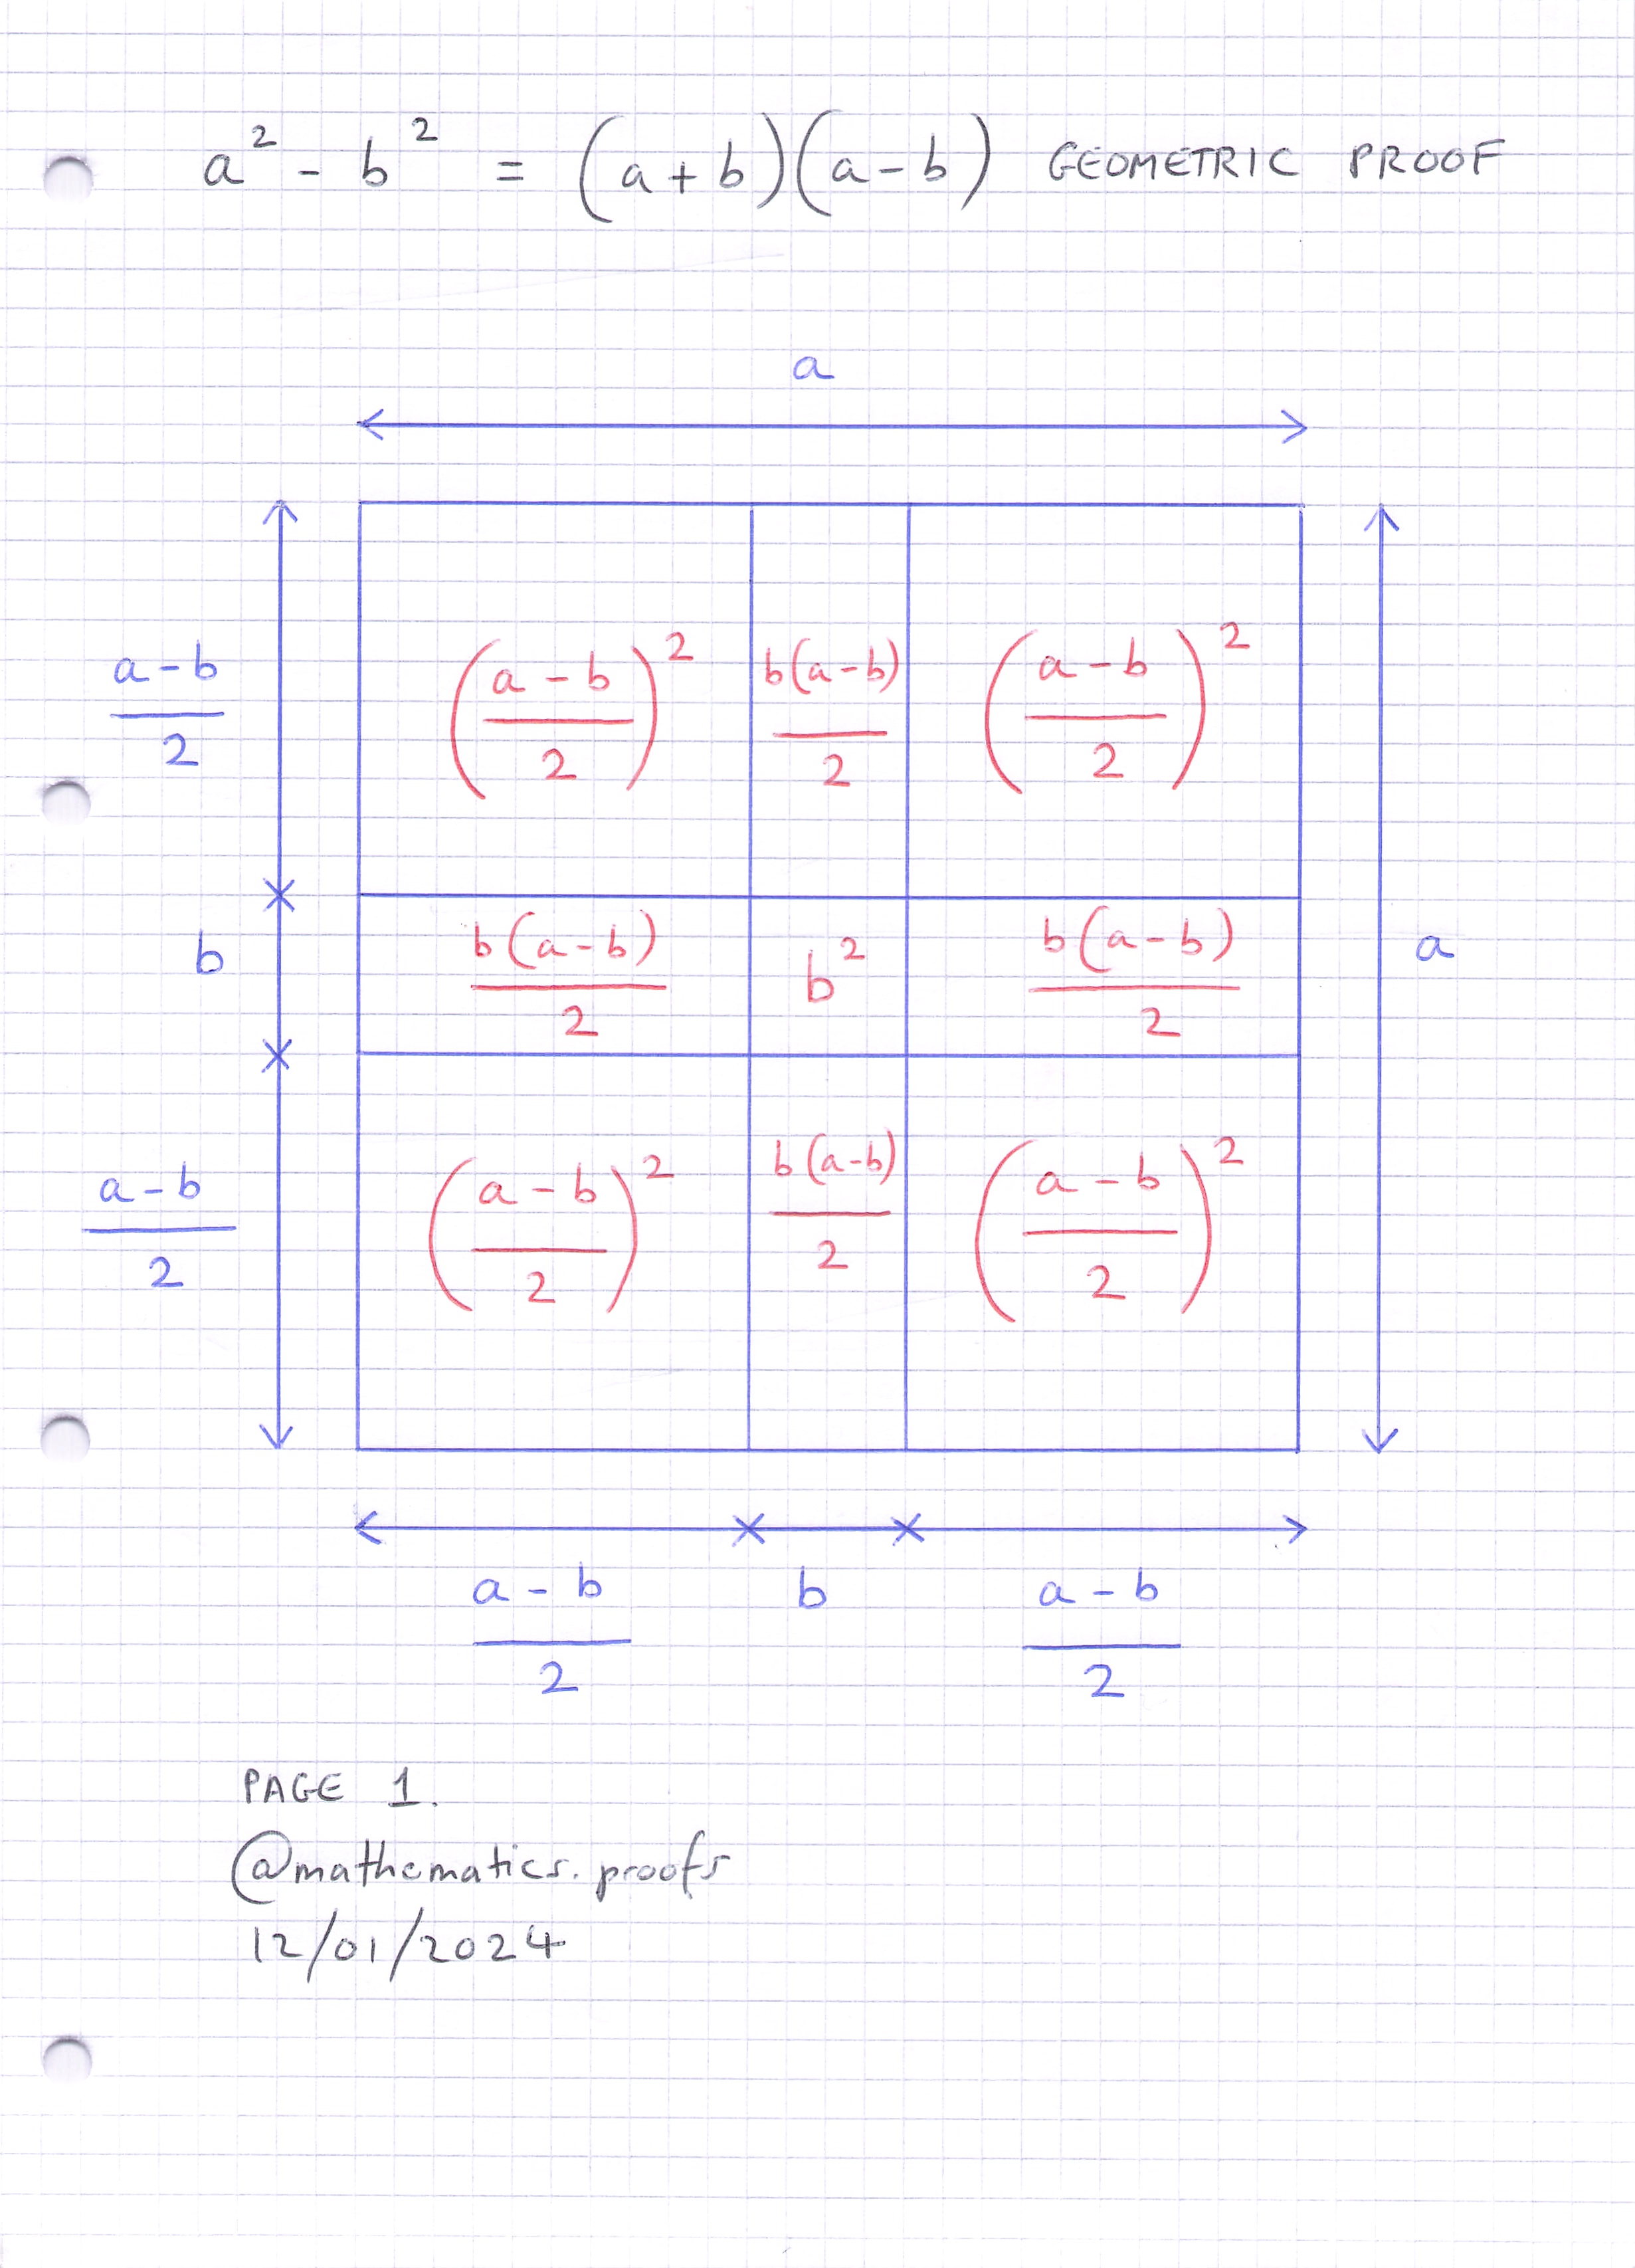 a² - b² = (a+b)(a-b) GEOMETRIC PROOF
a
a-b
2
(a-b
2)² b(a-b)
2 (a-b
2)²
b
b(a-b)
2 b² b(a-b)
2
a
a-b
2
(a-b
2)² b(a-b)
2 (a-b
2)²
a-b
2 b a-b
2
PAGE 1.
@mathematics.proofs
12/01/2024